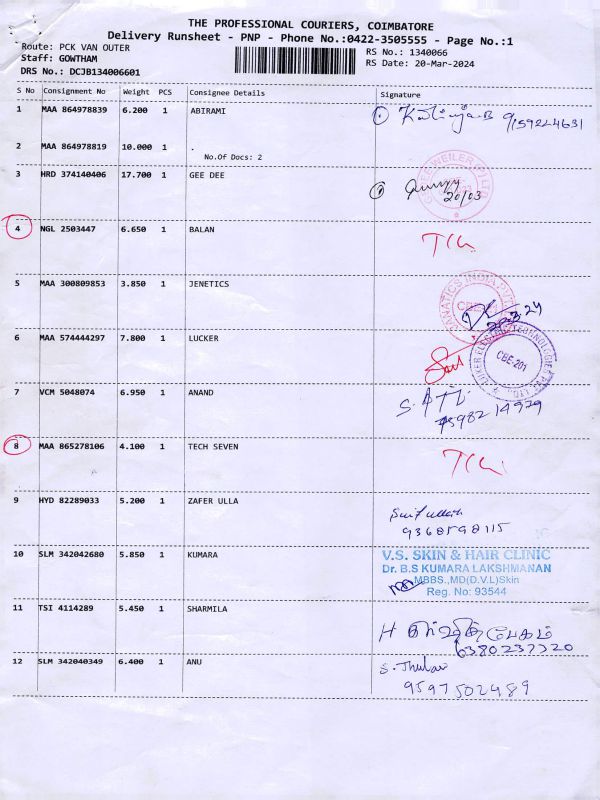 THE PROFESSIONAL COURIERS, COIMBATORE
Delivery Runsheet - PNP - Phone No.:0422-3505555 - Page No.:1
Route: PCK VAN OUTER
Staff: GOWTHAM
DRS No.: DCJB134006601
RS No.: 1340066
RS Date: 20-Mar-2024
S No Consignment No Weight PCS Consignee Details Signature
1 MAA 864978839 6.200 1 ABIRAMI
2 MAA 864978819 10.000 1 .
No.Of Docs: 2
3 HRD 374140406 17.700 1 GEE DEE
20/03
4 NGL 2503447 6.650 1 BALAN
5 MAA 300809853 3.850 1 JENETICS
CBE
6 MAA 574444297 7.800 1 LUCKER
CBE-201
7 VCM 5048074 6.950 1 ANAND
8 MAA 865278106 4.100 1 TECH SEVEN
9 HYD 82289033 5.200 1 ZAFER ULLA
10 SLM 342042680 5.850 1 KUMARA
V.S. SKIN & HAIR CLINIC
Dr. B.S KUMARA LAKSHMANAN
MBBS.,MD(D.V.L)Skin
Reg. No: 93544
11 TSI 4114289 5.450 1 SHARMILA
6380237320
12 SLM 342040349 6.400 1 ANU
9597502489